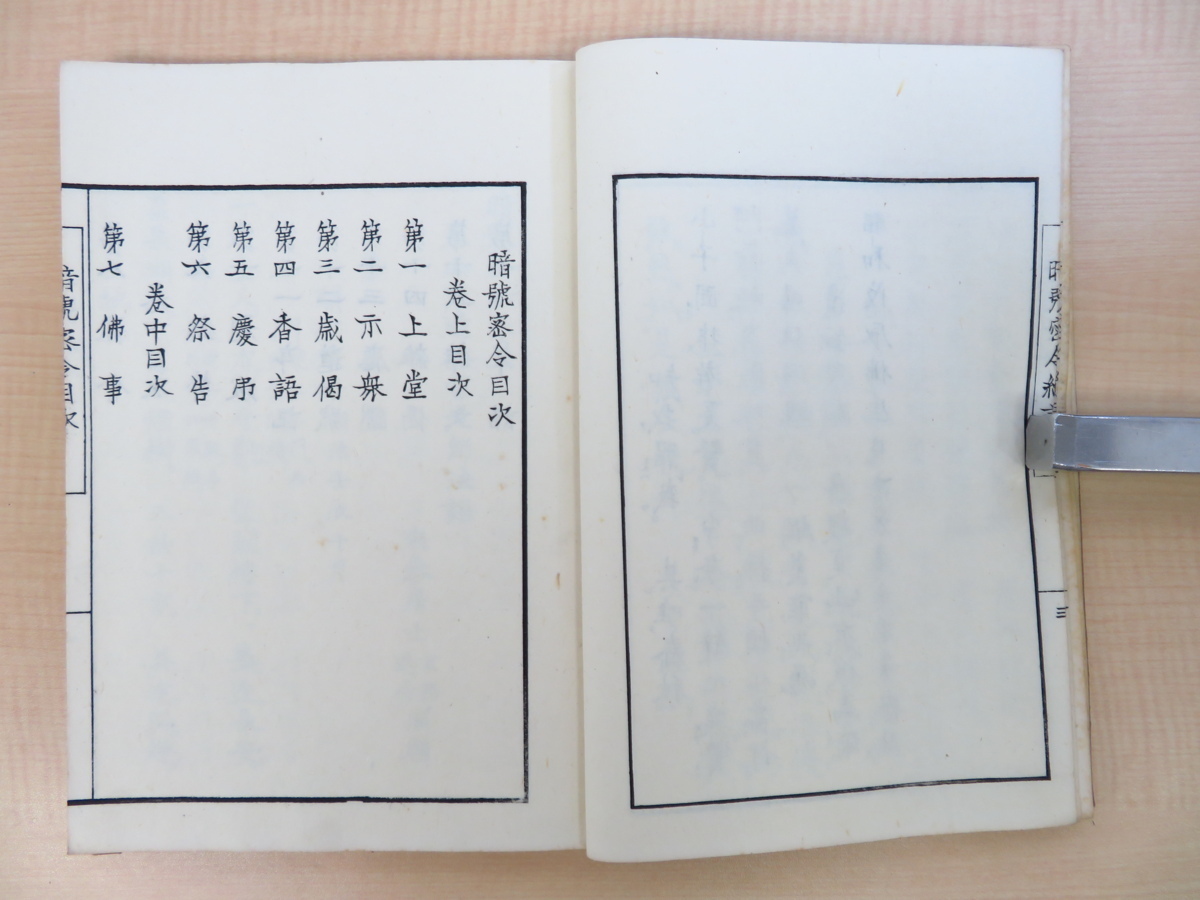 暗號密令目次
卷上目次
第一上堂
第二示衆
第三歳偈
第四香語
第五慶弔
第六祭告
卷中目次
第七佛事
暗號密令目次
暗號密令
三